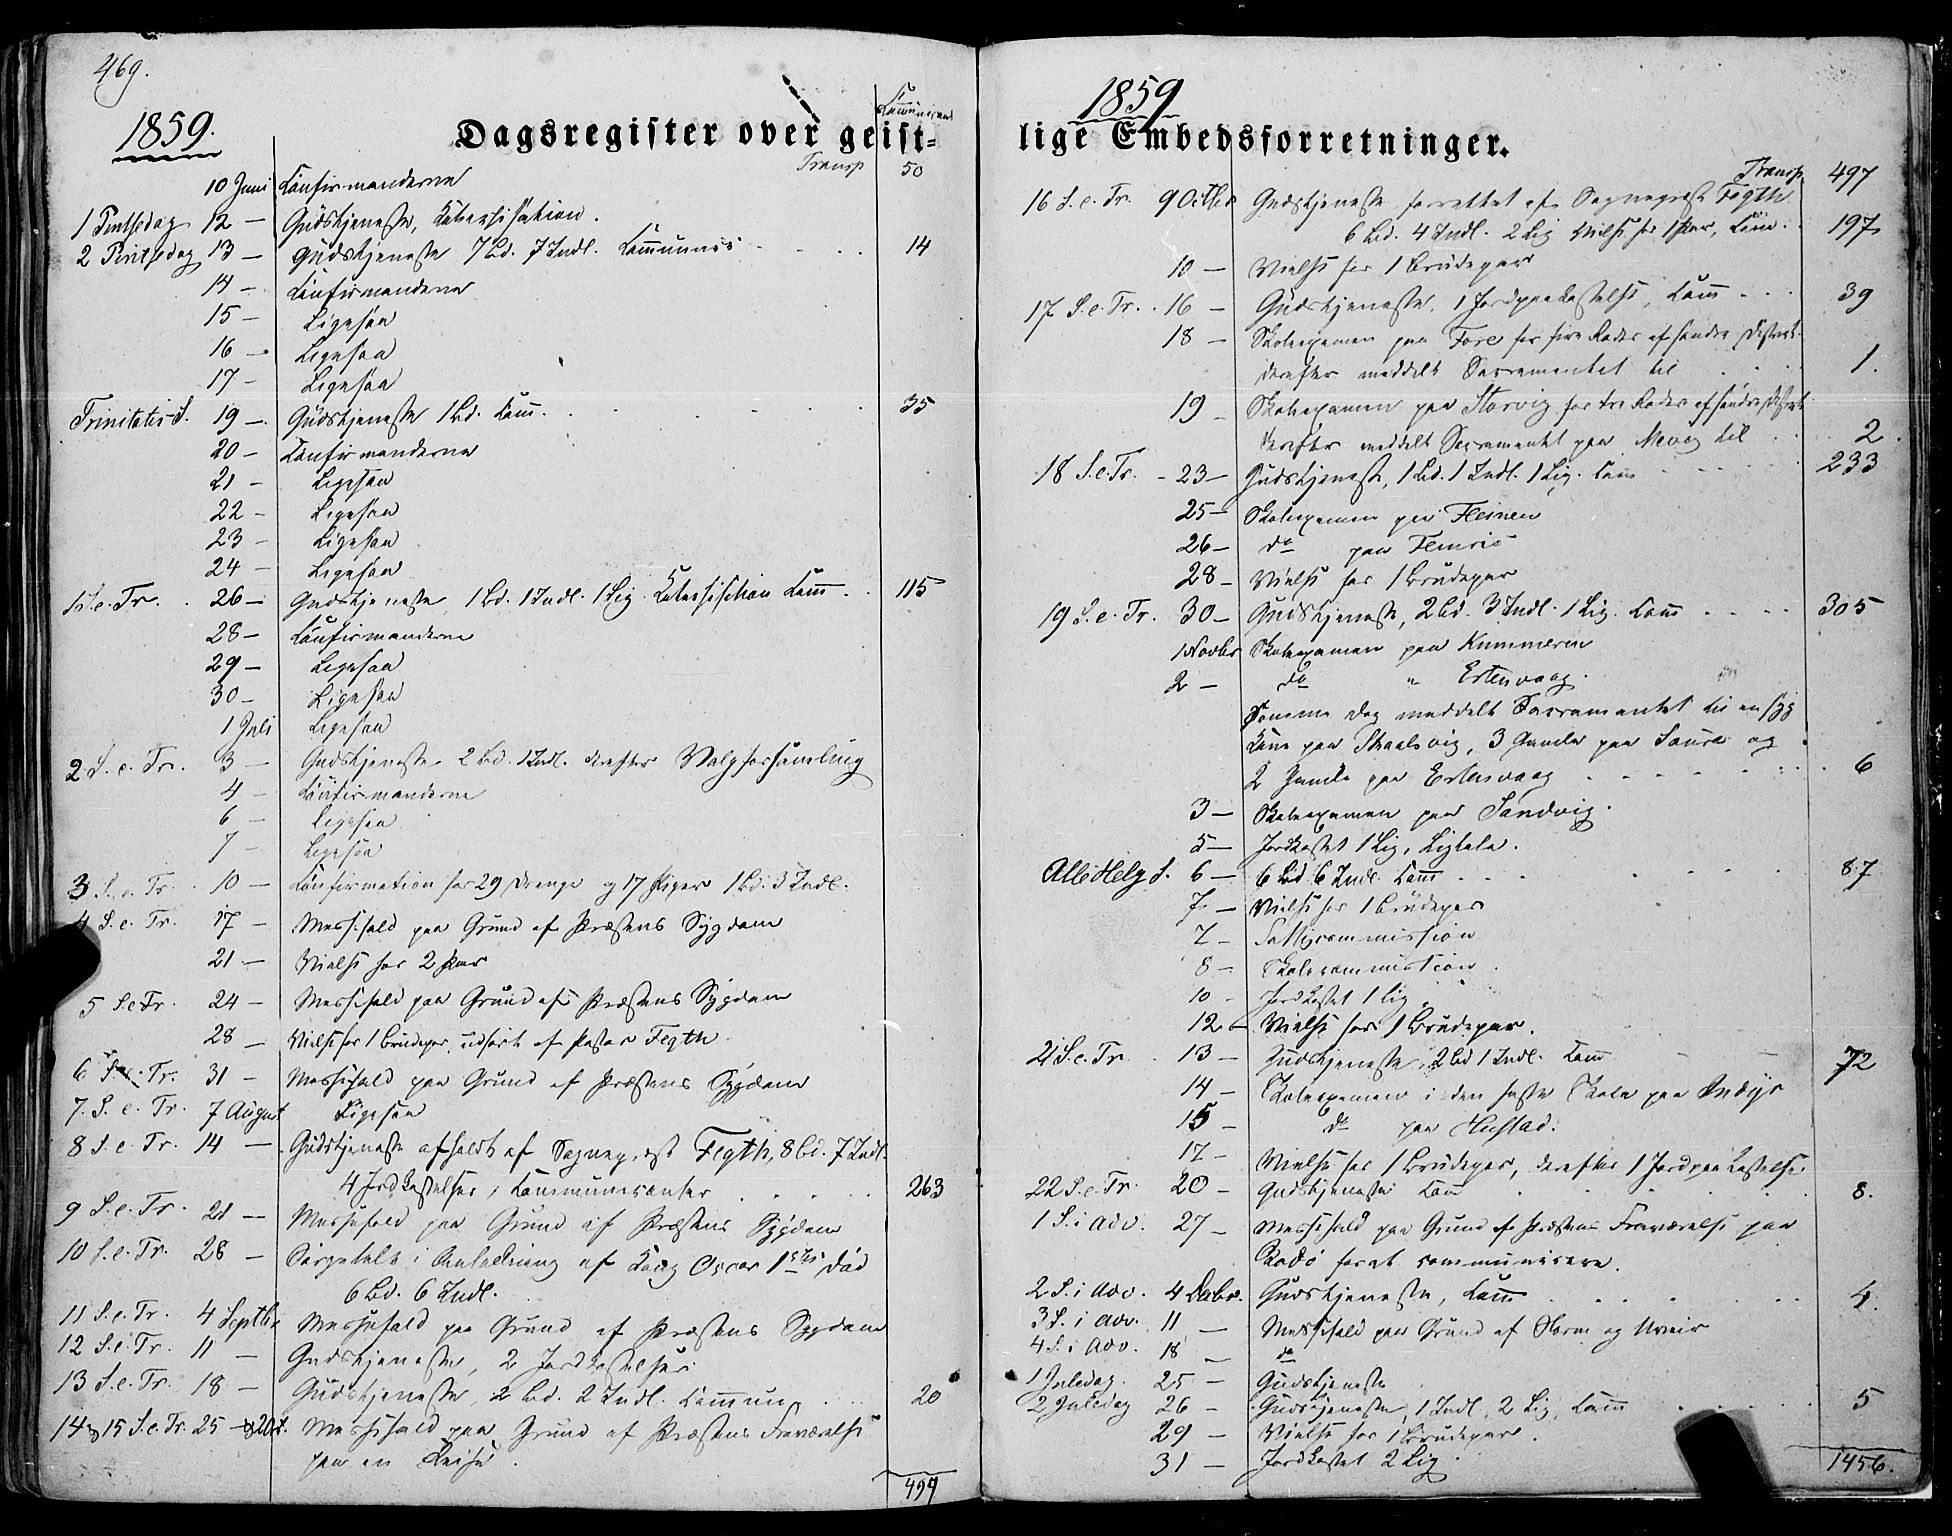 469.
1859.
Dagsregister over geist=
Communicant
Transp 50
10 Juni Confirmanderne
1 Pintsedag 12 — Gudstjeneste, Katechisation.
2 Pintsedag 13 — Gudstjeneste 7 Bd. 7 Indl. Communic: 14
14 — Confirmanderne
15 — Ligesaa
16 — Ligesaa
17 — Ligesaa
Trinitatis S. 19 — Gudstjeneste 1 Bd. Com. 35
20 — Confirmanderne
21 — Ligesaa
22 — Ligesaa
23 — Ligesaa
24 — Ligesaa
1 S. e. Tr. 26 — Gudstjeneste, 1 Bd. 1 Indl. 1 Lig. Katechisation Com. 115
28 — Confirmanderne
29 — Ligesaa
30 — Ligesaa
1 Juli Ligesaa
2 S. e. Tr. 3 — Gudstjeneste 2 Bd. 1 Indl. derefter Valgforsamling
4 — Confirmanderne
6 — Ligesaa
7 — Ligesaa
3 S. e. Tr. 10 — Confirmation for 29 Drenge og 17 Piger 1 Bd. 3 Indl.
4 S. e. Tr. 17 — Messefald paa Grund af Præstens Sygdom
21 — Vielse for 2 Par
5 S. e. Tr. 24 — Messefald paa Grund af Præstens Sygdom
28 — Vielse for 1 Brudepar, udført af Pastor Fegth
6 S. e. Tr. 31 — Messefald paa Grund af Præstens Sygdom
7. S. e. Tr. 7 August Ligesaa
8 S. e. Tr. 14 — Gudstjeneste afholdt af Sognepræst Fegth, 8 Bd. 7 Indl.
4 Jordkastelser, Communicanter 263
9 S. e. Tr. 21 — Messefald paa Grund af Præstens Sygdom
10 S. e. Tr. 28 — Sørgetale i Anledning af Kong Oscar 1stes Død
6 Bd. 6 Indl.
11 S. e. Tr. 4 Septbr Messefald paa Grund af Præstens Sygdom
12 S. e. Tr. 11 — Gudstjeneste, 2 Jordkastelser.
13 S. e. Tr. 18 — Gudstjeneste, 2 Bd. 2 Indl. Commun. 20
14 & 15 S. e. Tr. 25 — Messefald paa Grund af Præstens Fraværelse
paa en Reise.
497
1859
lige Embedsforretninger.
Transp 497
16 S. e. Tr. 9 Octbr Gudstjeneste forrettet af Sognepræst Fegth
6 Bd. 4 Indl. 2 Lig Vielse for 1 Par, Com. 197
10 — Vielse for 1 Brudepar
17 S. e. Tr. 16 — Gudstjeneste, 1 Jordpaakastelse, Com 39
18 — Skoleexamen paa Fore for fire Roder af søndre District
derefter meddelt Sacramentet til 1.
19 — Skoleexamen paa Storvig for tre Roder af søndre District
derefter meddelt Sacramentet paa Mevog til 2.
18 S. e. Tr. 23 — Gudstjeneste, 1 Bd. 1 Indl. 1 Lig. Com 233
25 — Skoleexamen paa Fleinen
26 — do paa Femris
28 — Vielse for 1 Brudepar
19 S. e. Tr. 30 — Gudstjeneste, 2 Bd. 3 Indl. 1 Lig. Com 305
1 Novbr Skoleexamen paa Kummeren
2 — do " Ertenvaag.
Samme Dag meddelt Sacramentet til en syg
Kone paa Skaalsvig, 3 Gamle paa Saura og
2 Gamle paa Ertensvaag 6
3 — Skoleexamen paa Sandvig.
5 — Jordkastet 1 Lig, Ligtale.
Alle Helg S. 6 — 6 Bd 6 Indl. Com 87
7 — Vielse for 1 Brudepar
7 — Fattigcommission
8 — Skolecommission.
10 — Jordkastet 1 Lig.
12 — Vielse for 1 Brudepar.
21 S. e. Tr. 13 — Gudstjeneste, 2 Bd 1 Indl. Com 72
14 — Skoleexamen i den faste Skole paa Indyr
15 — do paa Hustad.
17 — Vielse for 1 Brudepar, derefter 1 Jordpaakastelse
22 S. e. Tr. 20 — Gudstjeneste Com 8.
1 S. i Adv. 27 — Messefald paa Grund af Præstens Fraværelse paa
Bodø for at communicere.
2 S. i Adv. 4 Decbr. Gudstjeneste, Com 4.
3 S. i Adv. 11 — Messefald paa Grund af Storm og Uveir
4 S. i Adv. 18 — do
1 Juledag. 25 — Gudstjeneste
2 Juledag 26 — Gudstjeneste, 1 Indl, 2 Lig, Com 5
29 — Vielse for 1 Brudepar.
31 — Jordkastet 2 Lig.
1456.